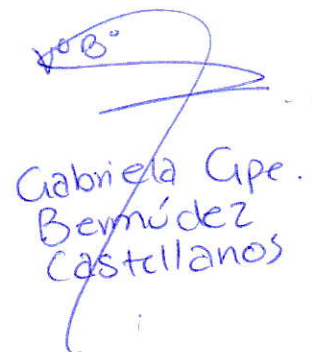 VºBº
Gabriela Gpe.
Bermúdez
Castellanos